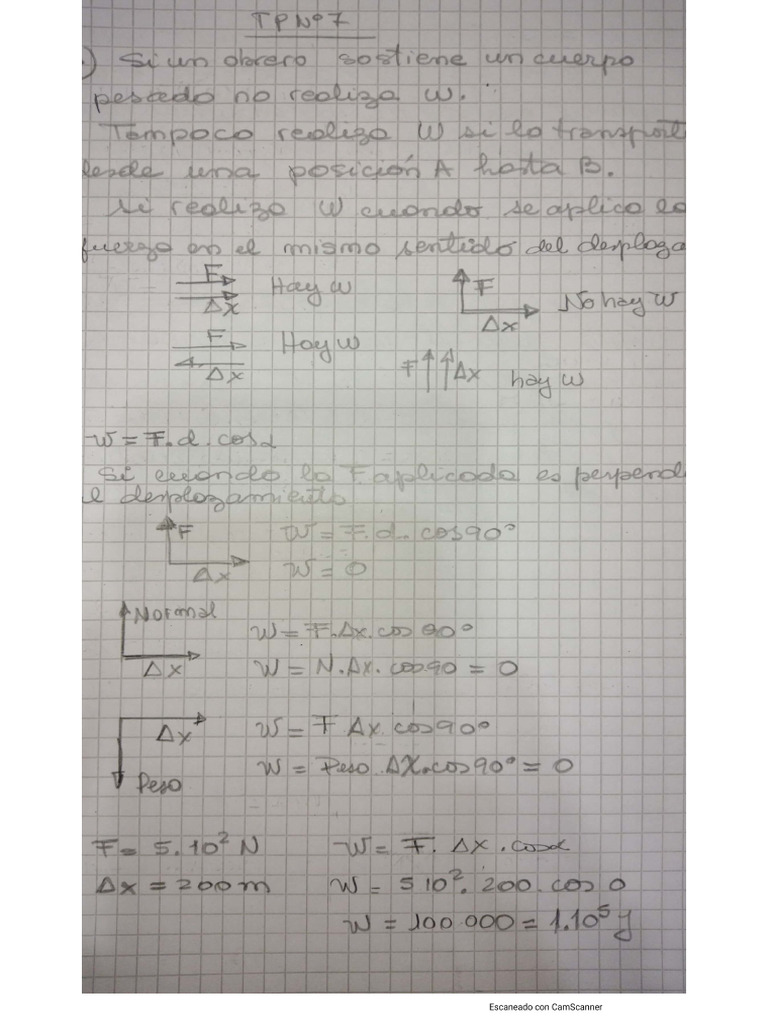 TP Nº 7
) Si un obrero sostiene un cuerpo
pesado no realiza W.
Tampoco realiza W si lo transport
desde una posición A hasta B.
Si realiza W cuando se aplica la
fuerza en el mismo sentido del desplaza
F
Δx
Hay W
F
Δx
No hay W
F
Δx
Hay W
F Δx hay W
W = F.d.cosα
Si cuando la F aplicada es perpend
el desplazamiento
F
Δx
W = F.d.cos90°
W = 0
Normal
Δx
W = F.Δx.cos 90°
W = N.Δx.cos90 = 0
Δx
Peso
W = F Δx.cos90°
W = Peso.ΔX.cos90° = 0
F = 5.10² N
W = F. Δx.cosα
Δx = 200m
W = 5 10². 200. cos 0
W = 100.000 = 1.10⁵ J
Escaneado con CamScanner